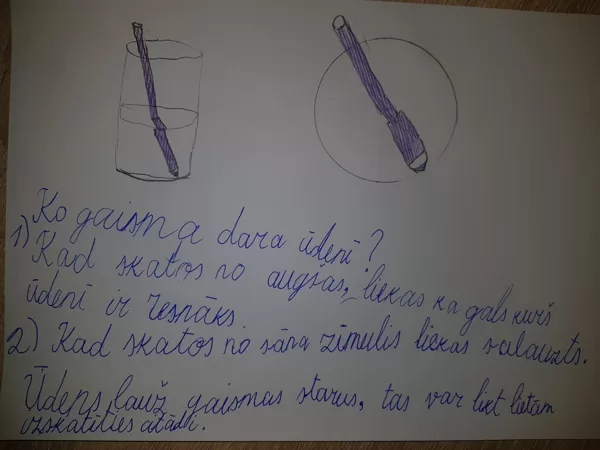 Ko gaisma dara ūdenī?
1) Kad skatos no augšas, liekas ka gals kurš
ūdenī ir resnāks.
2) Kad skatos no sāna zīmulis liekas salauzts.
Ūdens lauž gaismas starus, tas var likt lietām
izskatīties atādi.